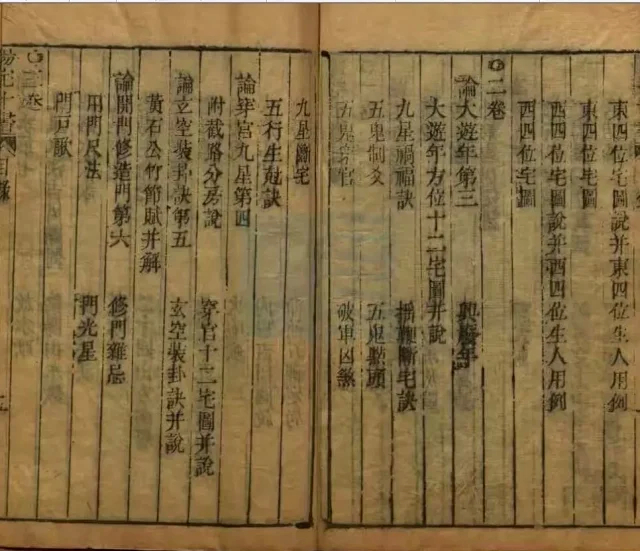 東四位宅圖說并東四位生人用例
東四位宅圖
西四位宅圖說并西四位生人用例
西四位宅圖
二卷
論大遊年第三
大遊年方位十二宅圖并說
九星禍福訣 斷宅訣
五鬼制爻 五鬼點頭
五鬼穿宮 破軍凶煞
九星斷宅
五行生剋訣
論穿宮九星第四
附截路分房說 穿宮十二宅圖并說
論玄空裝卦訣第五 玄空裝卦訣并說
黃石公竹節賦并解
論開門修造門第六 修門雜忌
用門尺法 門光星
門戶歌
三卷
陽宅十書 目錄